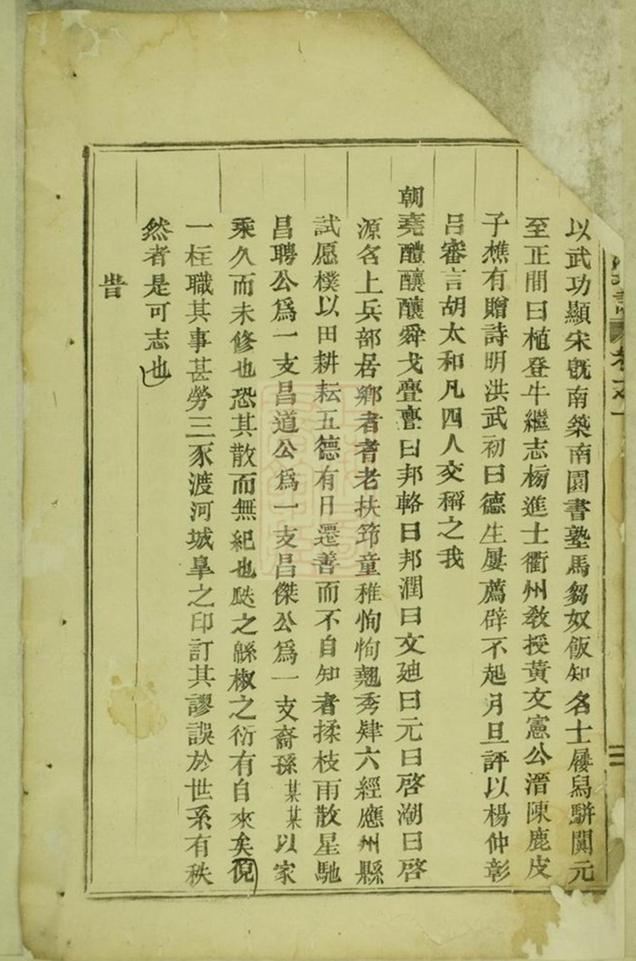 以武功顯宋旣南築南園書塾馬芻奴飯知名士屨舄駢闐元
至正間曰植登牛繼志榜進士衢州敎授黃文憲公溍陳鹿皮
子樵有贈詩明洪武初曰德生屢薦辟不起月旦評以楊仲彰
呂審言胡太和凡四人交稱之我
朝堯醴釀釀舜戈亹亹曰邦輅曰邦潤曰文廸曰元曰啓潮曰啓
源名上兵部居鄉者耆老扶筇童稚恂恂翹秀肄六經應州縣
試愿樸以田耕耘五德有日遷善而不自知者揉枝雨散星馳
昌聘公爲一支昌道公爲一支昌傑公爲一支裔孫某某以家
乘久而未修也恐其散而無紀也瓞之緜椒之衍有自來矣俔
一柱職其事甚勞三豕渡河城臯之印訂其謬誤於世系有秩
然者是可志也
旹